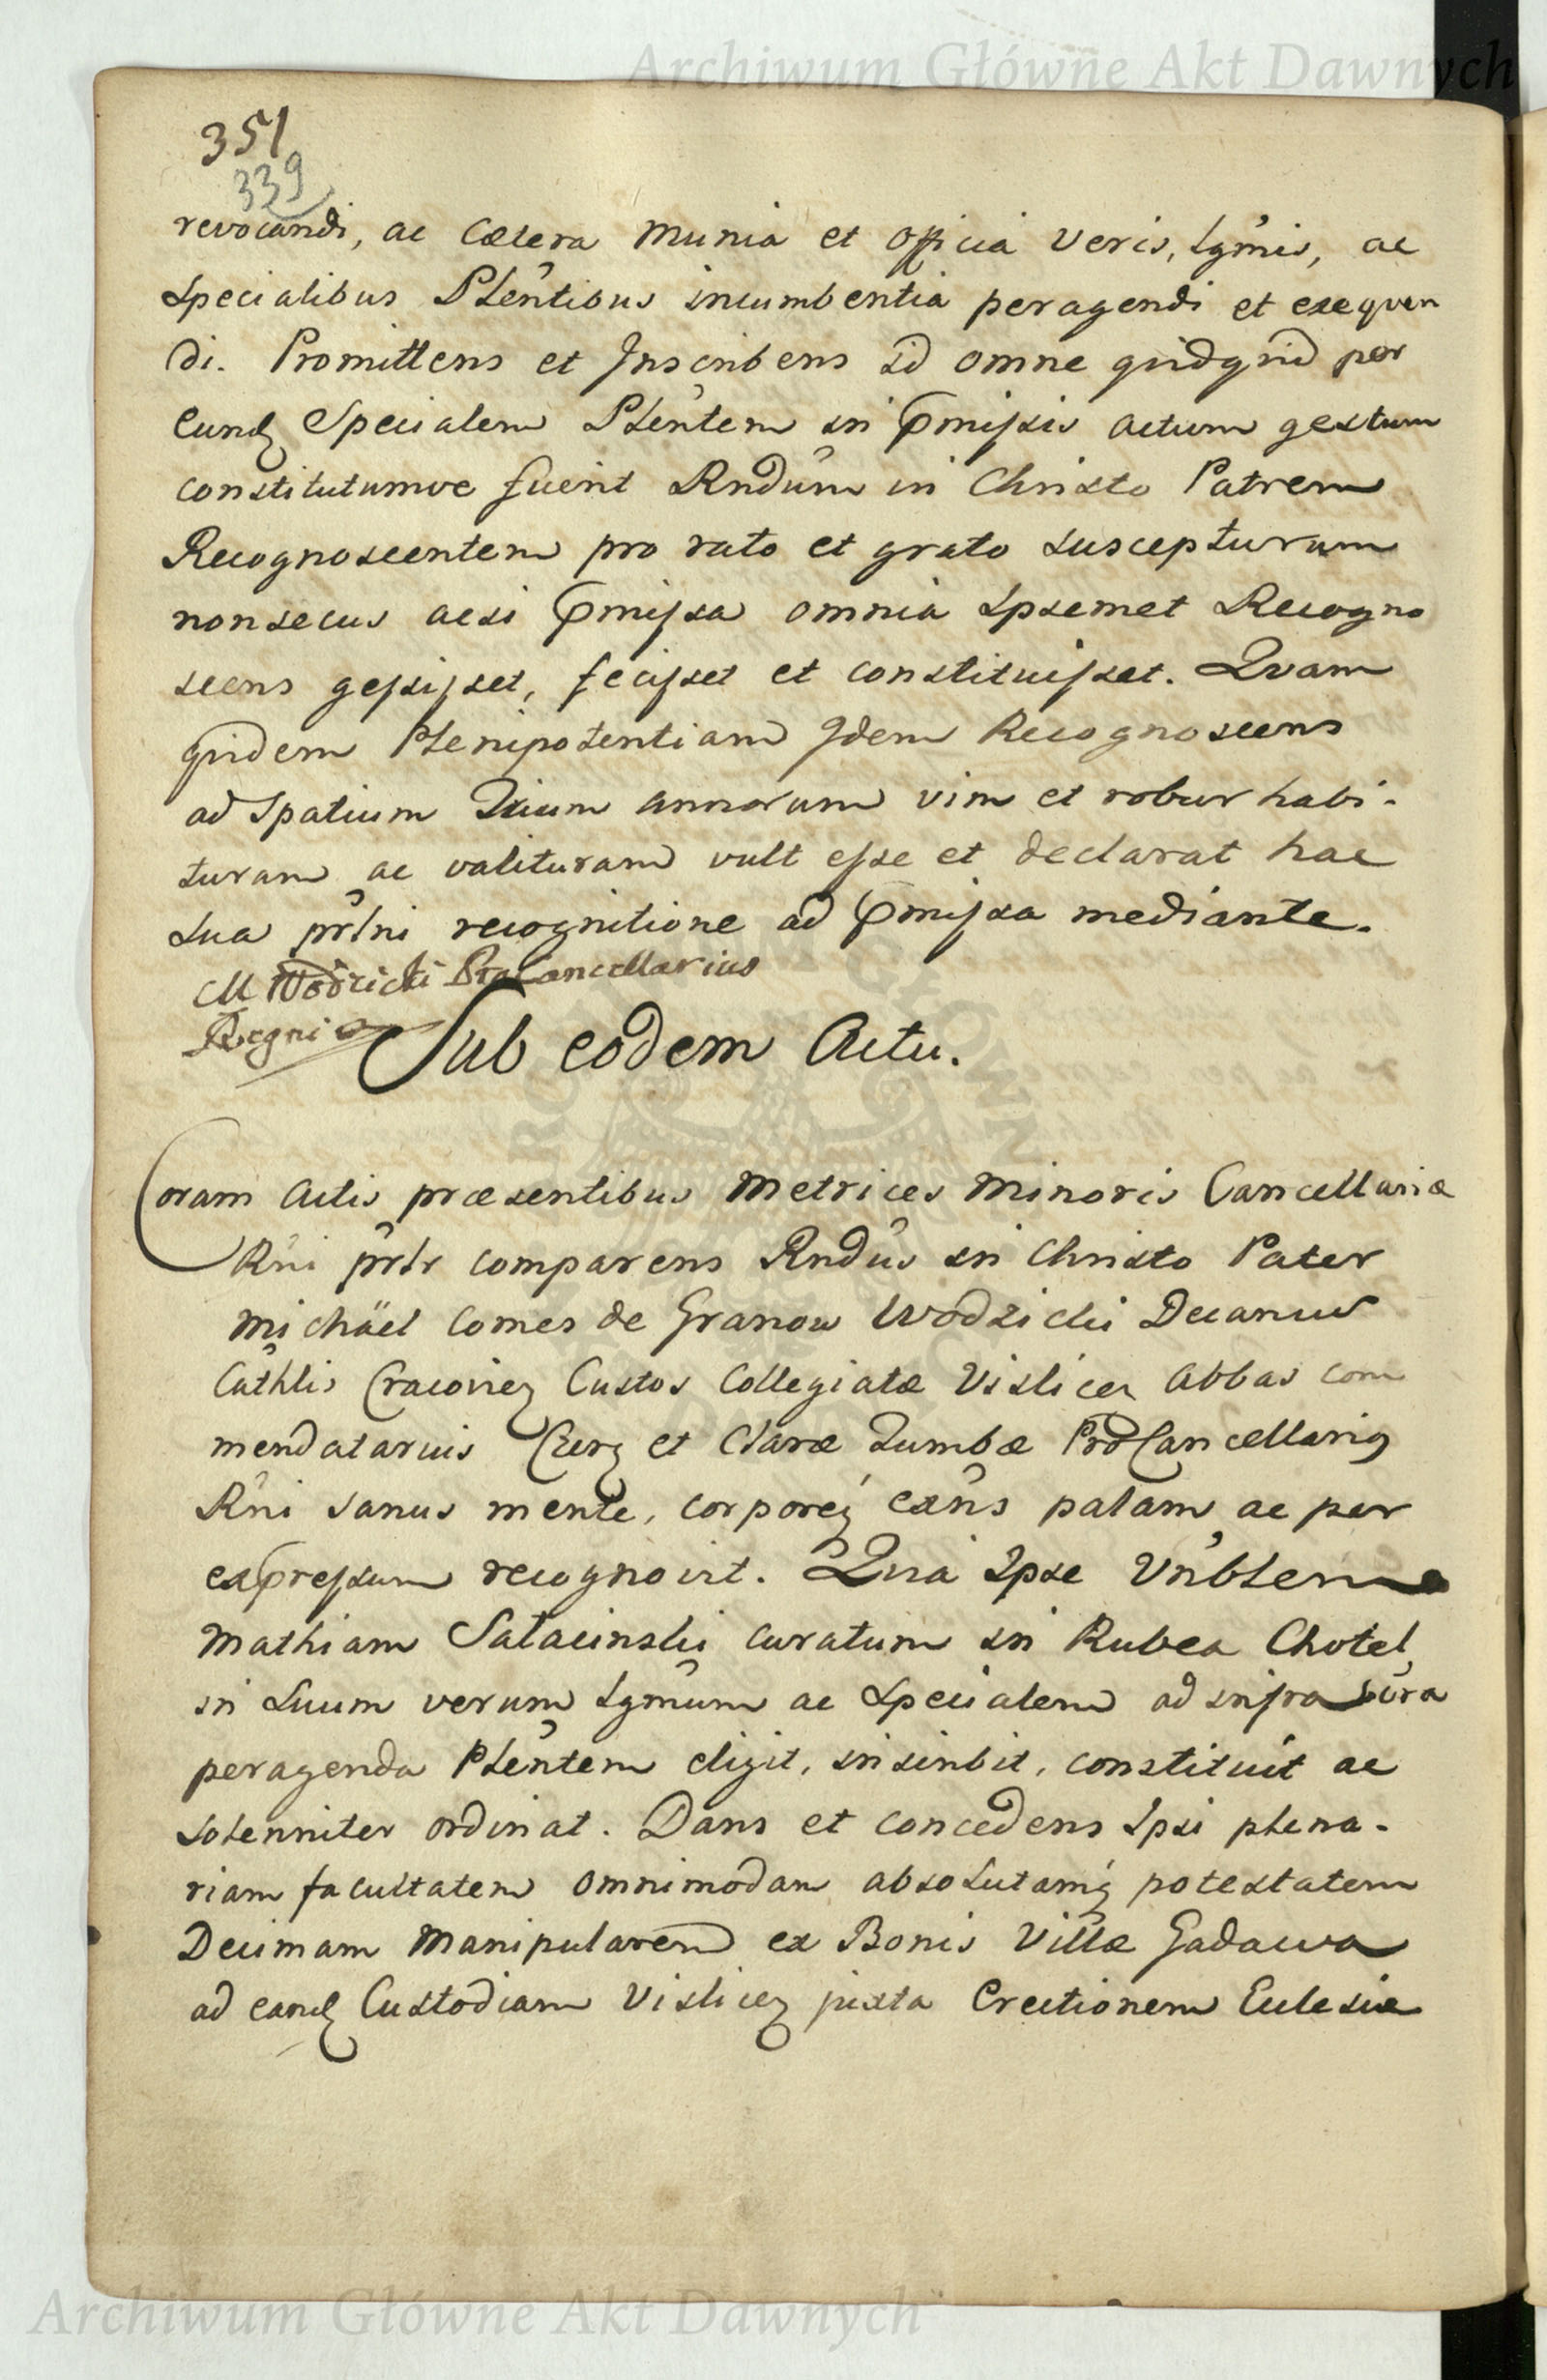 Archiwum Główne Akt Dawnych
351
339
revocandi, ac Cætera Munia et officia Veris, Lgmis, ac
Specialibus Plentibus incumbentia peragendi et exequen
di. Promittens et Inscribens id omne quidquid per
Eundq Specialem Plentem in Pmissis actum gestum
constitutumve fuerit Rndum in Christo Patrem
Recognoscentem pro rato et grato suscepturum
nonsecus acsi Pmissa omnia Ipsemet Recogno
scens gessisset, fecisset et constituisset. Quam
quidem Plenipotentiam Idem Recognoscens
ad Spatium Trium annorum vim et robur habi-
turam ac valituram vult esse et declarat hac
Sua prlni recognitione ad Pmissa mediante.
M Wodzicki ProCancellarius
Regni
Sub eodem Actu.
Coram Actis præsentibus Metrices Minoris Cancellariæ
Rni prlr comparens Rndus in Christo Pater
Michäel Comes de Granow Wodzicki Decanus
Cathlis Cracovieq Custos Collegiatæ Vislicen Abbas Com
mendatarius Cerq et Claræ Tumbæ ProCancellarig
Rni sanus mente, corporeq exns palam ac per
expressum recognovit. Quia Ipse Vnblem
Mathiam Salacinski curatum in Rubea Chotel,
in Suum verum Lgmum ac Specialem ad infra sura
peragenda Plentem eligit, inscribit, constituit ac
Solenniter ordinat. Dans et concedens Ipsi plena-
riam facultatem omnimodam absolutamq potestatem
Decimam Manipularem ex Bonis Villæ Gadawa
ad eandq Custodiam Vislieq juxta Erectionem Ecclesiæ
Archiwum Główne Akt Dawnych